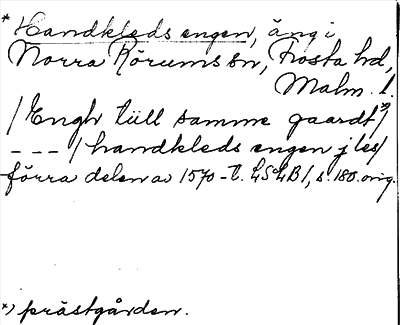 * Handkleds engen, äng i
Norra Rörums sn, Frosta hd,
Malm. l.
/Engh till samme gaardt *)/
--- /handkleds engen j les/
förra delen av 1570-t. LSLB/, s. 180. orig.
*) prästgården.